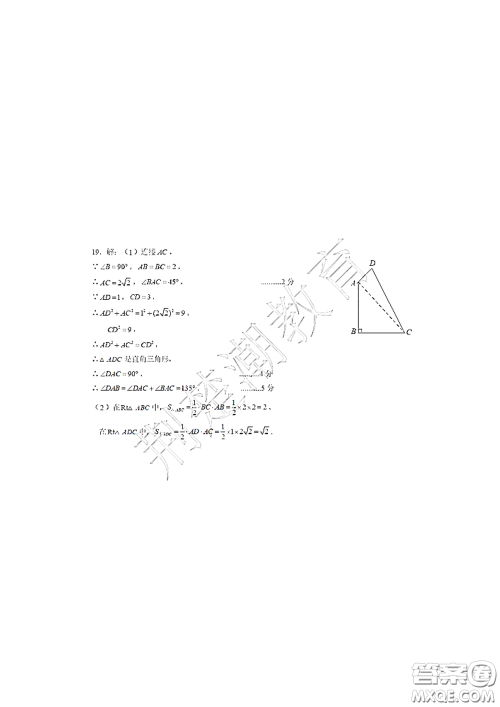 19．解：（1）连接AC，
∵∠B=90°，AB=BC=2，
∴AC=2√2，∠BAC=45°．..........2分
∵AD=1，CD=3，
∴AD²+AC²=1²+(2√2)²=9，
CD²=9，
∴AD²+AC²=CD²，
∴△ADC是直角三角形，
∴∠DAC=90°，..........4分
∴∠DAB=∠DAC+∠BAC=135°．..........5分
（2）在Rt△ABC中，S△ABC=1/2·BC·AB=1/2×2×2=2，
在Rt△ADC中，S△ADC=1/2·AD·AC=1/2×1×2√2=√2．
D
A
B
C
荆楚潮教育
答案圈
MXQE.COM